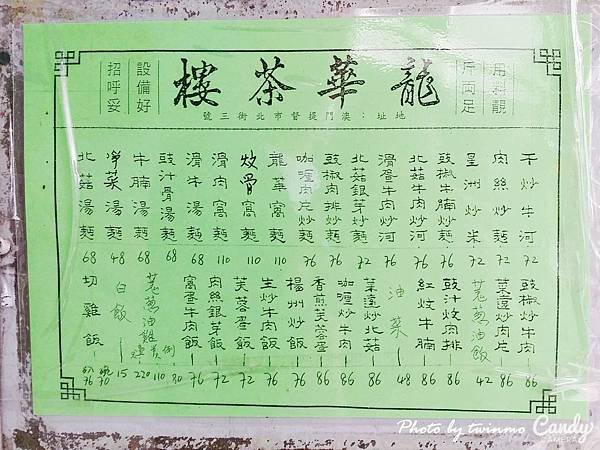 用料靚
斤両足
龍華茶樓
設備好
招呼妥
地址:澳門提督市北街三號
干炒牛河 72
肉絲炒麵 72
星洲炒米 72
豉椒牛腩炒麵 76
北菇牛肉炒河 76
滑蛋牛肉炒河 76
北菇銀芽炒麵 72
豉椒肉排炒麵 76
咖喱肉片炒麵 76
龍華窩麵 110
炆骨窩麵 110
滑肉窩麵 110
滑牛湯麵 68
豉汁骨湯麵 68
牛腩湯麵 68
淨菜湯麵 48
北菇湯麵 68
豉椒炒牛肉 86
菜薳炒肉片 86
羗葱油飯 42
豉汁炆肉排 86
紅炆牛腩 86
油菜 48
菜薳炒北菇 86
咖喱炒牛肉 86
香煎芙蓉蛋 86
楊州炒飯 76
生炒牛肉飯 76
芙蓉蛋飯 72
肉絲銀芽飯 72
窩蛋牛肉飯 76
羗葱油雞 例 80 110 220
白飯 15
切雞飯 70 76
Photo by twinmo Candy
CAMERA